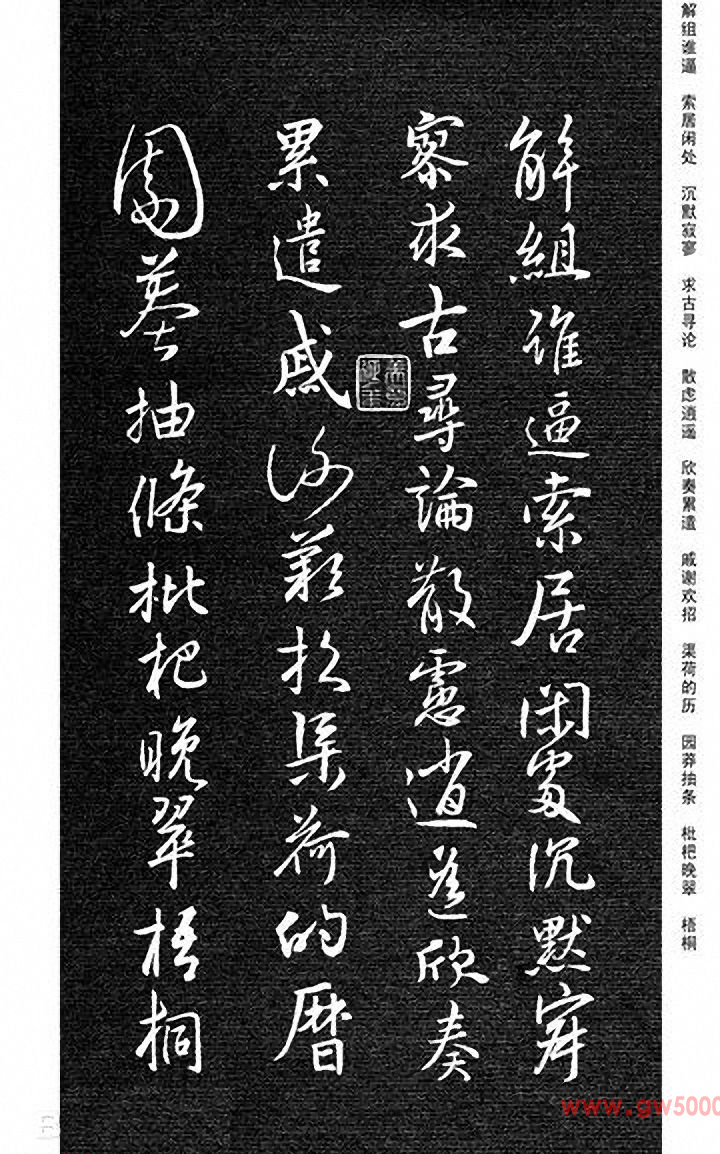 解组谁逼 索居闲处 沉默寂寥 求古寻论 散虑逍遥 欣奏累遣 戚谢欢招 渠荷的历 园莽抽条 枇杷晚翠 梧桐
解組誰逼索居閑處沉默寂
寥求古尋論散慮逍遙欣奏
累遣慼謝歡招渠荷的曆
園莽抽條枇杷晚翠梧桐
www.gw5000